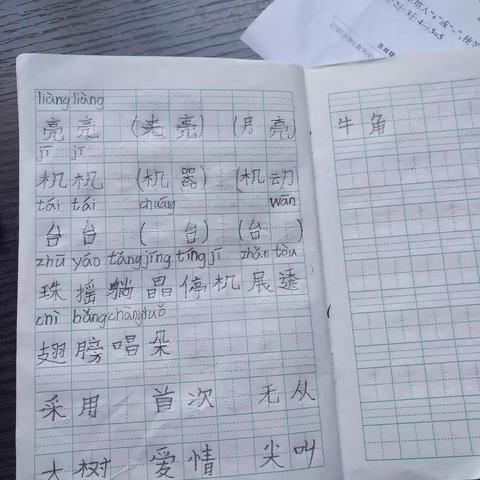 liàng liàng
亮 亮 (光 亮) (月 亮)
jī jī
机 机 (机 器) (机 动)
tái tái chuáng wān
台 台 ( 台) (台 )
zhū yáo tǎng jīng tíng jī zhǎn tòu
珠 摇 躺 晶 停 机 展 透
chì bǎng chàng duǒ
翅 膀 唱 朵
采 用 首 次 无 从
大 树 爱 情 尖 叫
牛 角